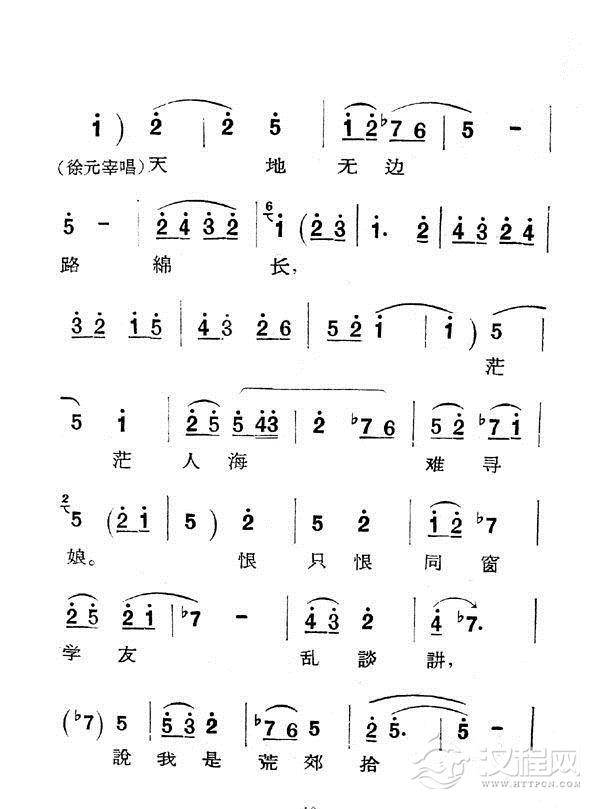 i ) 2 | 2 5 | i 2 ♭7 6 | 5 -
(徐元宰唱)天 地 无 边
5 - | 2 4 3 2 | 6 i ( 2 3 | i. 2 | 4 3 2 4 |
路 綿 长,
3 2 i 5 | 4 3 2 6 | 5 2 i | i ) 5 |
茫
5 i | 2 5 5 4 3 | 2 ♭7 6 | 5 2 ♭7 i |
茫 人 海 难 寻
2 5 ( 2 i | 5 ) 2 | 5 2 | i 2 ♭7 |
娘。 恨 只 恨 同 窗
2 5 2 i | ♭7 - | 4 3 2 | 4 ♭7. |
学 友 乱 談 誁,
(♭7) 5 | 5 3 2 | ♭7 6 5 | 2 5. | 5 - |
說 我 是 荒 郊 拾
汉程网
WWW.HTTPCN.COM